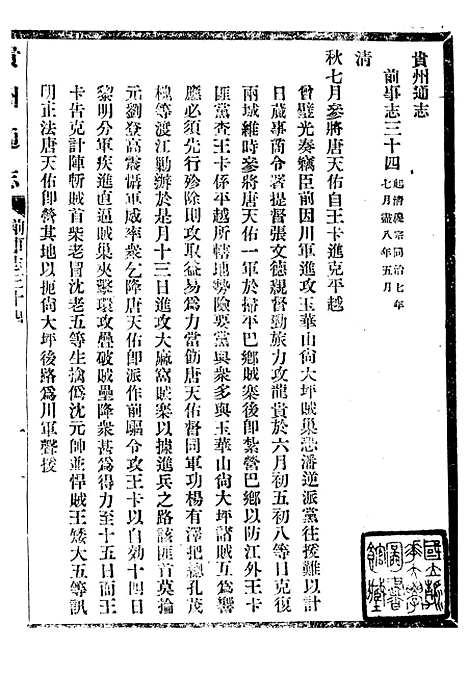 貴州通志
前事志三十四 起清穆宗同治七年七月盡八年五月
清
秋七月參將唐天佑自王卡進克平越
曾璧光奏竊臣前因川軍進攻玉華山尙大坪賊巢恐潘逆派黨往援難以計
日蕆事商令署提督張文德親督勁旅力攻龍貴於六月初五初八等日克復
兩城維時參將唐天佑一軍於掃平巴鄉賊寨後卽紮營巴鄉以防江外王卡
匪黨查王卡係平越所轄地勢險要黨與衆多與玉華山尙大坪諸賊互爲響
應必須先行殄除則攻取益易爲力當飭唐天佑督同軍功楊有澤把總孔茂
槐等渡江勦辦於是月十三日進攻大麻窩賊寨以據進兵之路該匪首莫掄
元劉登高震懾軍威率衆乞降唐天佑卽派作前驅令攻王卡以自効十四日
黎明分軍疾進直逼賊巢夾擊環攻疊破賊壘降衆甚爲得力至十五日而王
卡告克計陣斬賊首柴老冒沈老五等生擒僞沈元帥並悍賊王矮大五等訊
明正法唐天佑卽營其地以扼尙大坪後路爲川軍聲援
貴州通志 前事志三十四